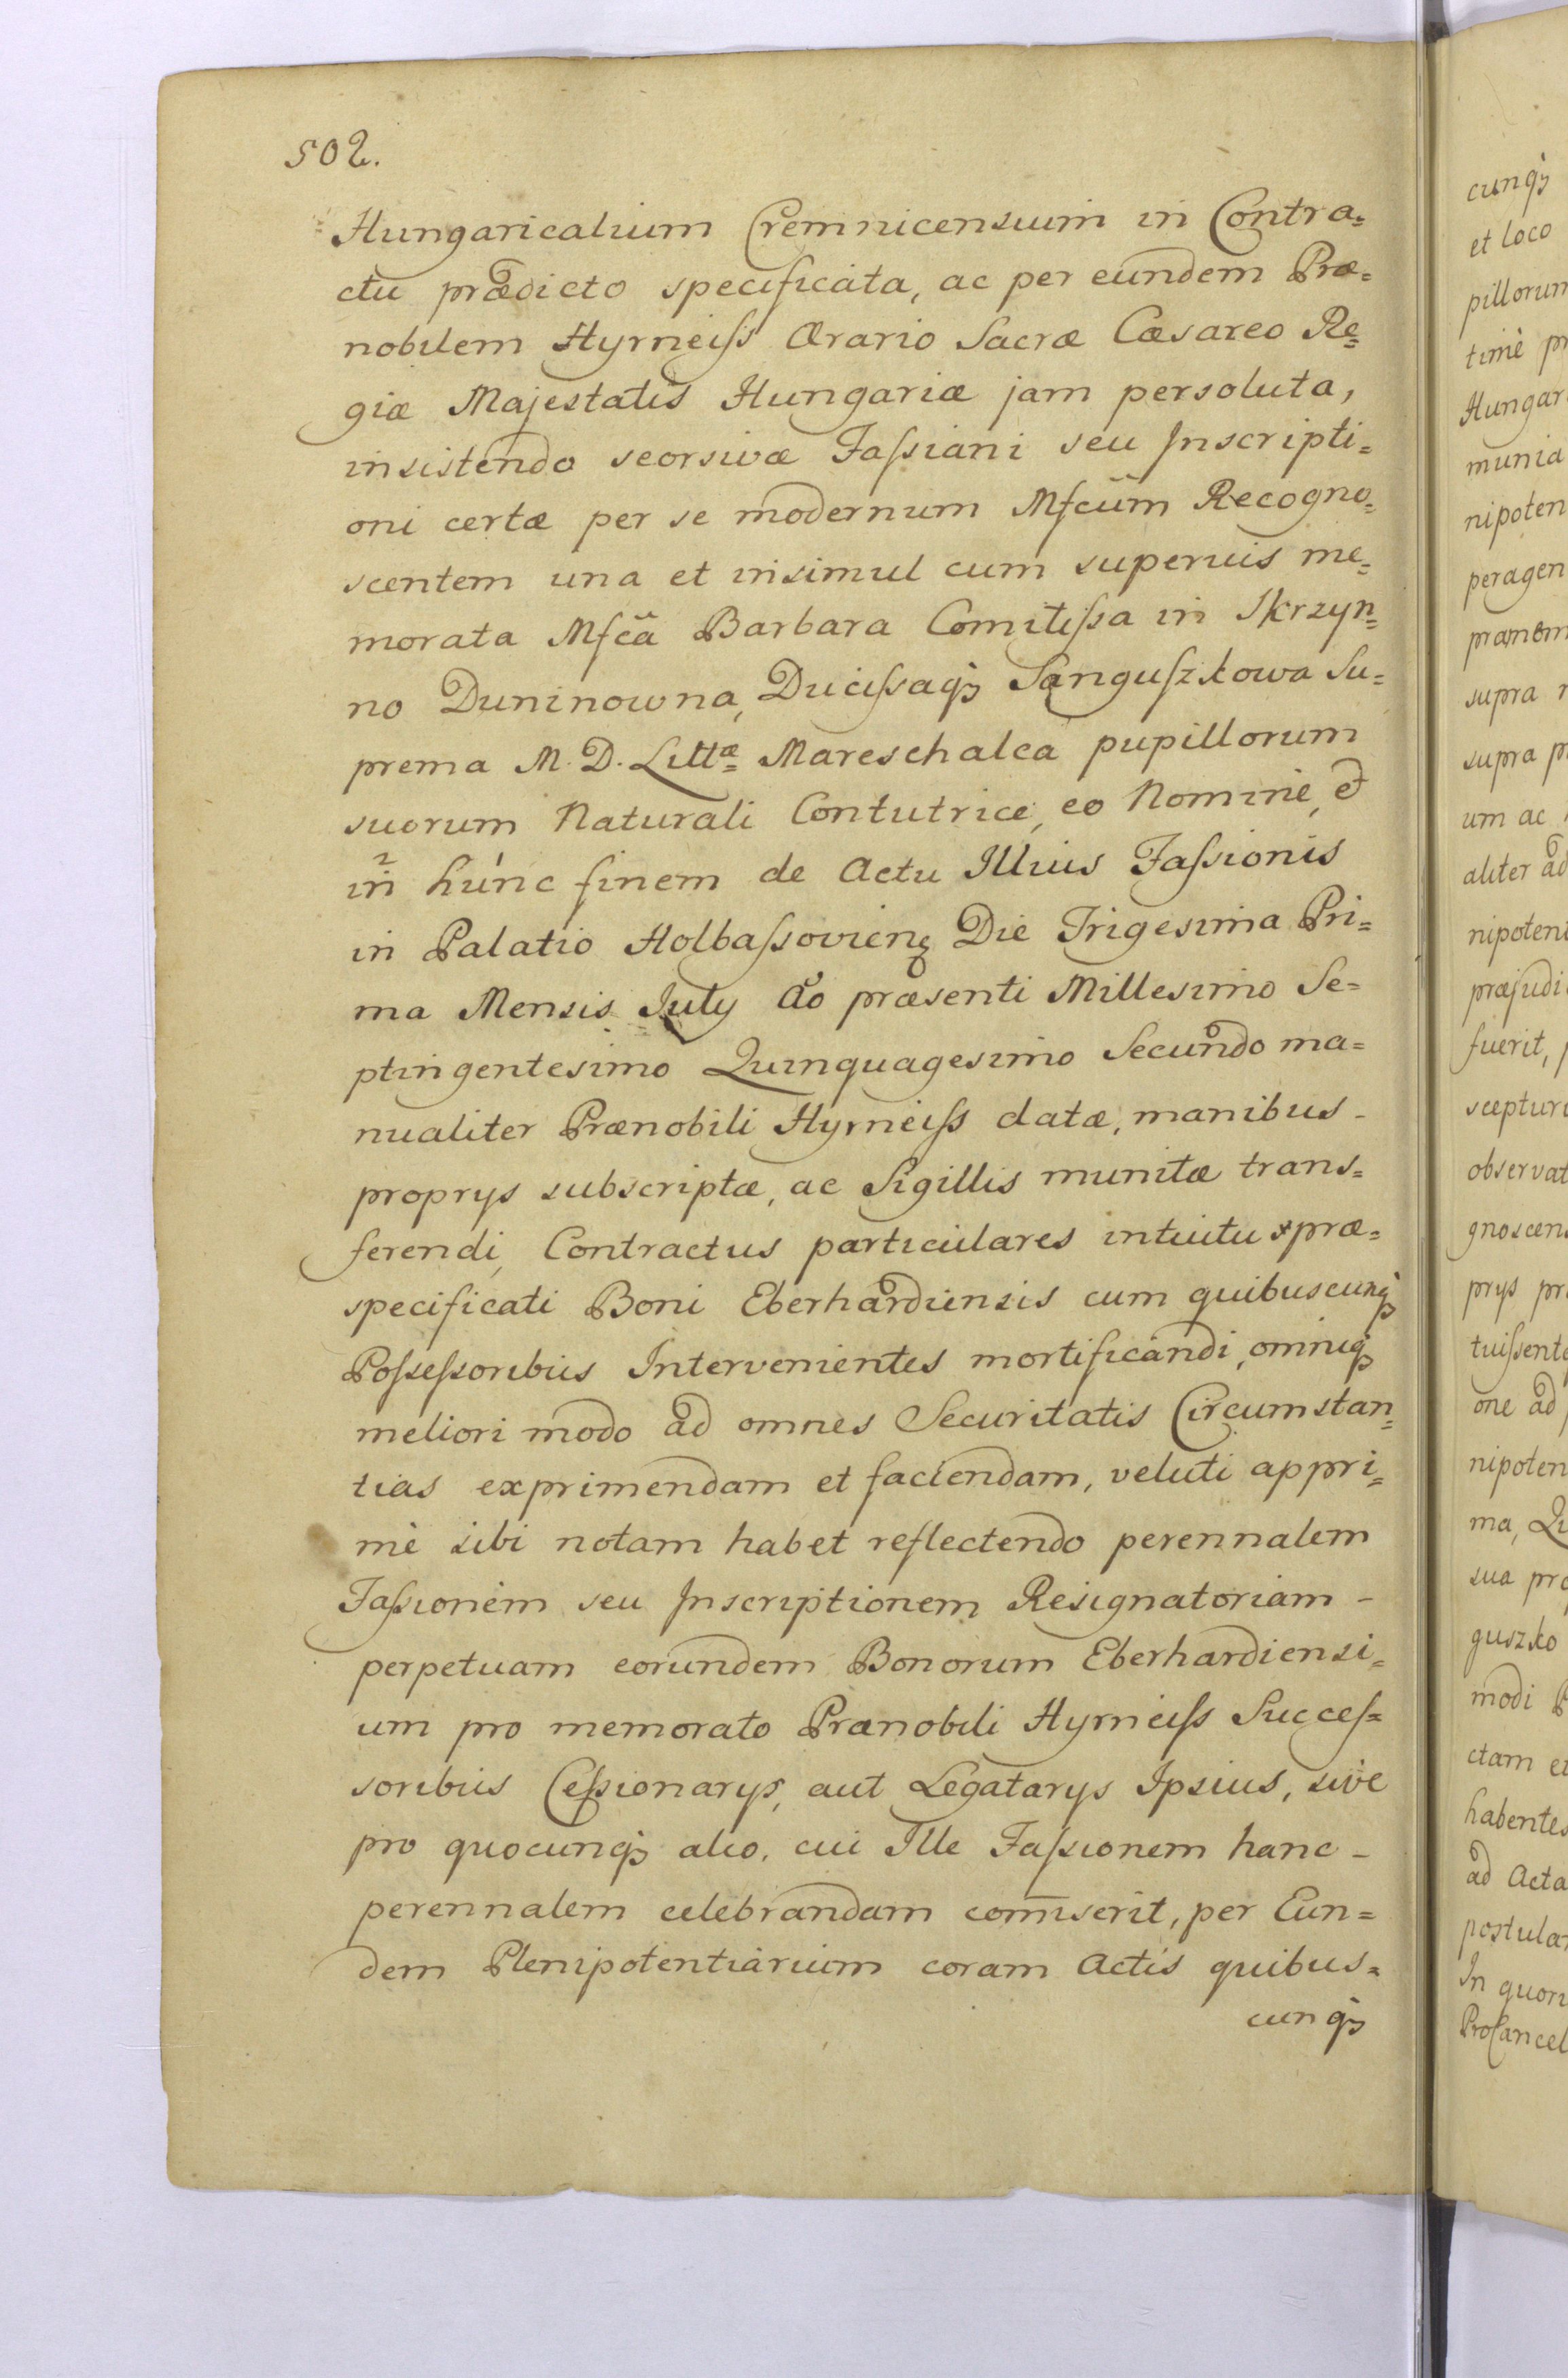 502.
Hungaricalium Cremnicensium in Contra=
ctu prædicto specificata, ac per eundem Præ=
nobilem Hyrneiſs Ærario Sacræ Cæsareo Re=
giæ Majestatis Hungariæ jam persoluta,
insistendo seorsivæ Faſsiani seu Inscripti=
oni certæ per se modernum Mfcūm Recogno=
scentem una et insimul cum superius me=
morata Mfcā Barbara Comitiſsa in Skrzyn=
no Duninowna, Duciſsaqꝫ Sanguſzkowa Su=
prema M. D. Littæ Mareschalca pupillorum
suorum Naturali Contutrice, eo Nomine, et
in hunc finem de Actu Illius Faſsionis
in Palatio Holbaſsovienꝫ Die Trigesima Pri=
ma Mensis July Ao præsenti Millesimo Se=
ptingentesimo Quinquagesimo Secundo ma=
nualiter Prænobili Hyrneiſs datæ, manibus -
proprys subscriptæ, ac Sigillis munitæ trans=
ferendi, Contractus particulares intuitu præ=
specificati Boni Eberhardiensis cum quibuscunqꝫ
Poſseſsoribus Intervenientes mortificandi, omniqꝫ
meliori modo ad omnes Securitatis Circumstan=
tias exprimendam et faciendam, veluti appri=
mè sibi notam habet reflectendo perennalem
Faſsionem seu Inscriptionem Resignatoriam -
perpetuam eorundem Bonorum Eberhardiensi=
um pro memorato Prænobili Hyrneiſs Succeſ=
soribus Ceſsionarys, aut Legatarys Ipsius, sive
pro quocunqꝫ alio, cui Ille Faſsionem hanc -
perennalem celebrandam com̄iserit, per Eun=
dem Plenipotentiarium coram Actis quibus=
cunqꝫ
cunqꝫ
et loco
pillorum
timè pr
Hungar
munia
nipoten
peragen
supra
supra p
um ac
aliter ad
nipoten
præjudi
fuerit,
sceptur
observat
gnoscen
prys pr
tuiſsent
one ad
nipoten
ma, Qu
sua pro
guszko
modi P
ctam et
habentes
ad Acta
postula
In quor
ProCancel